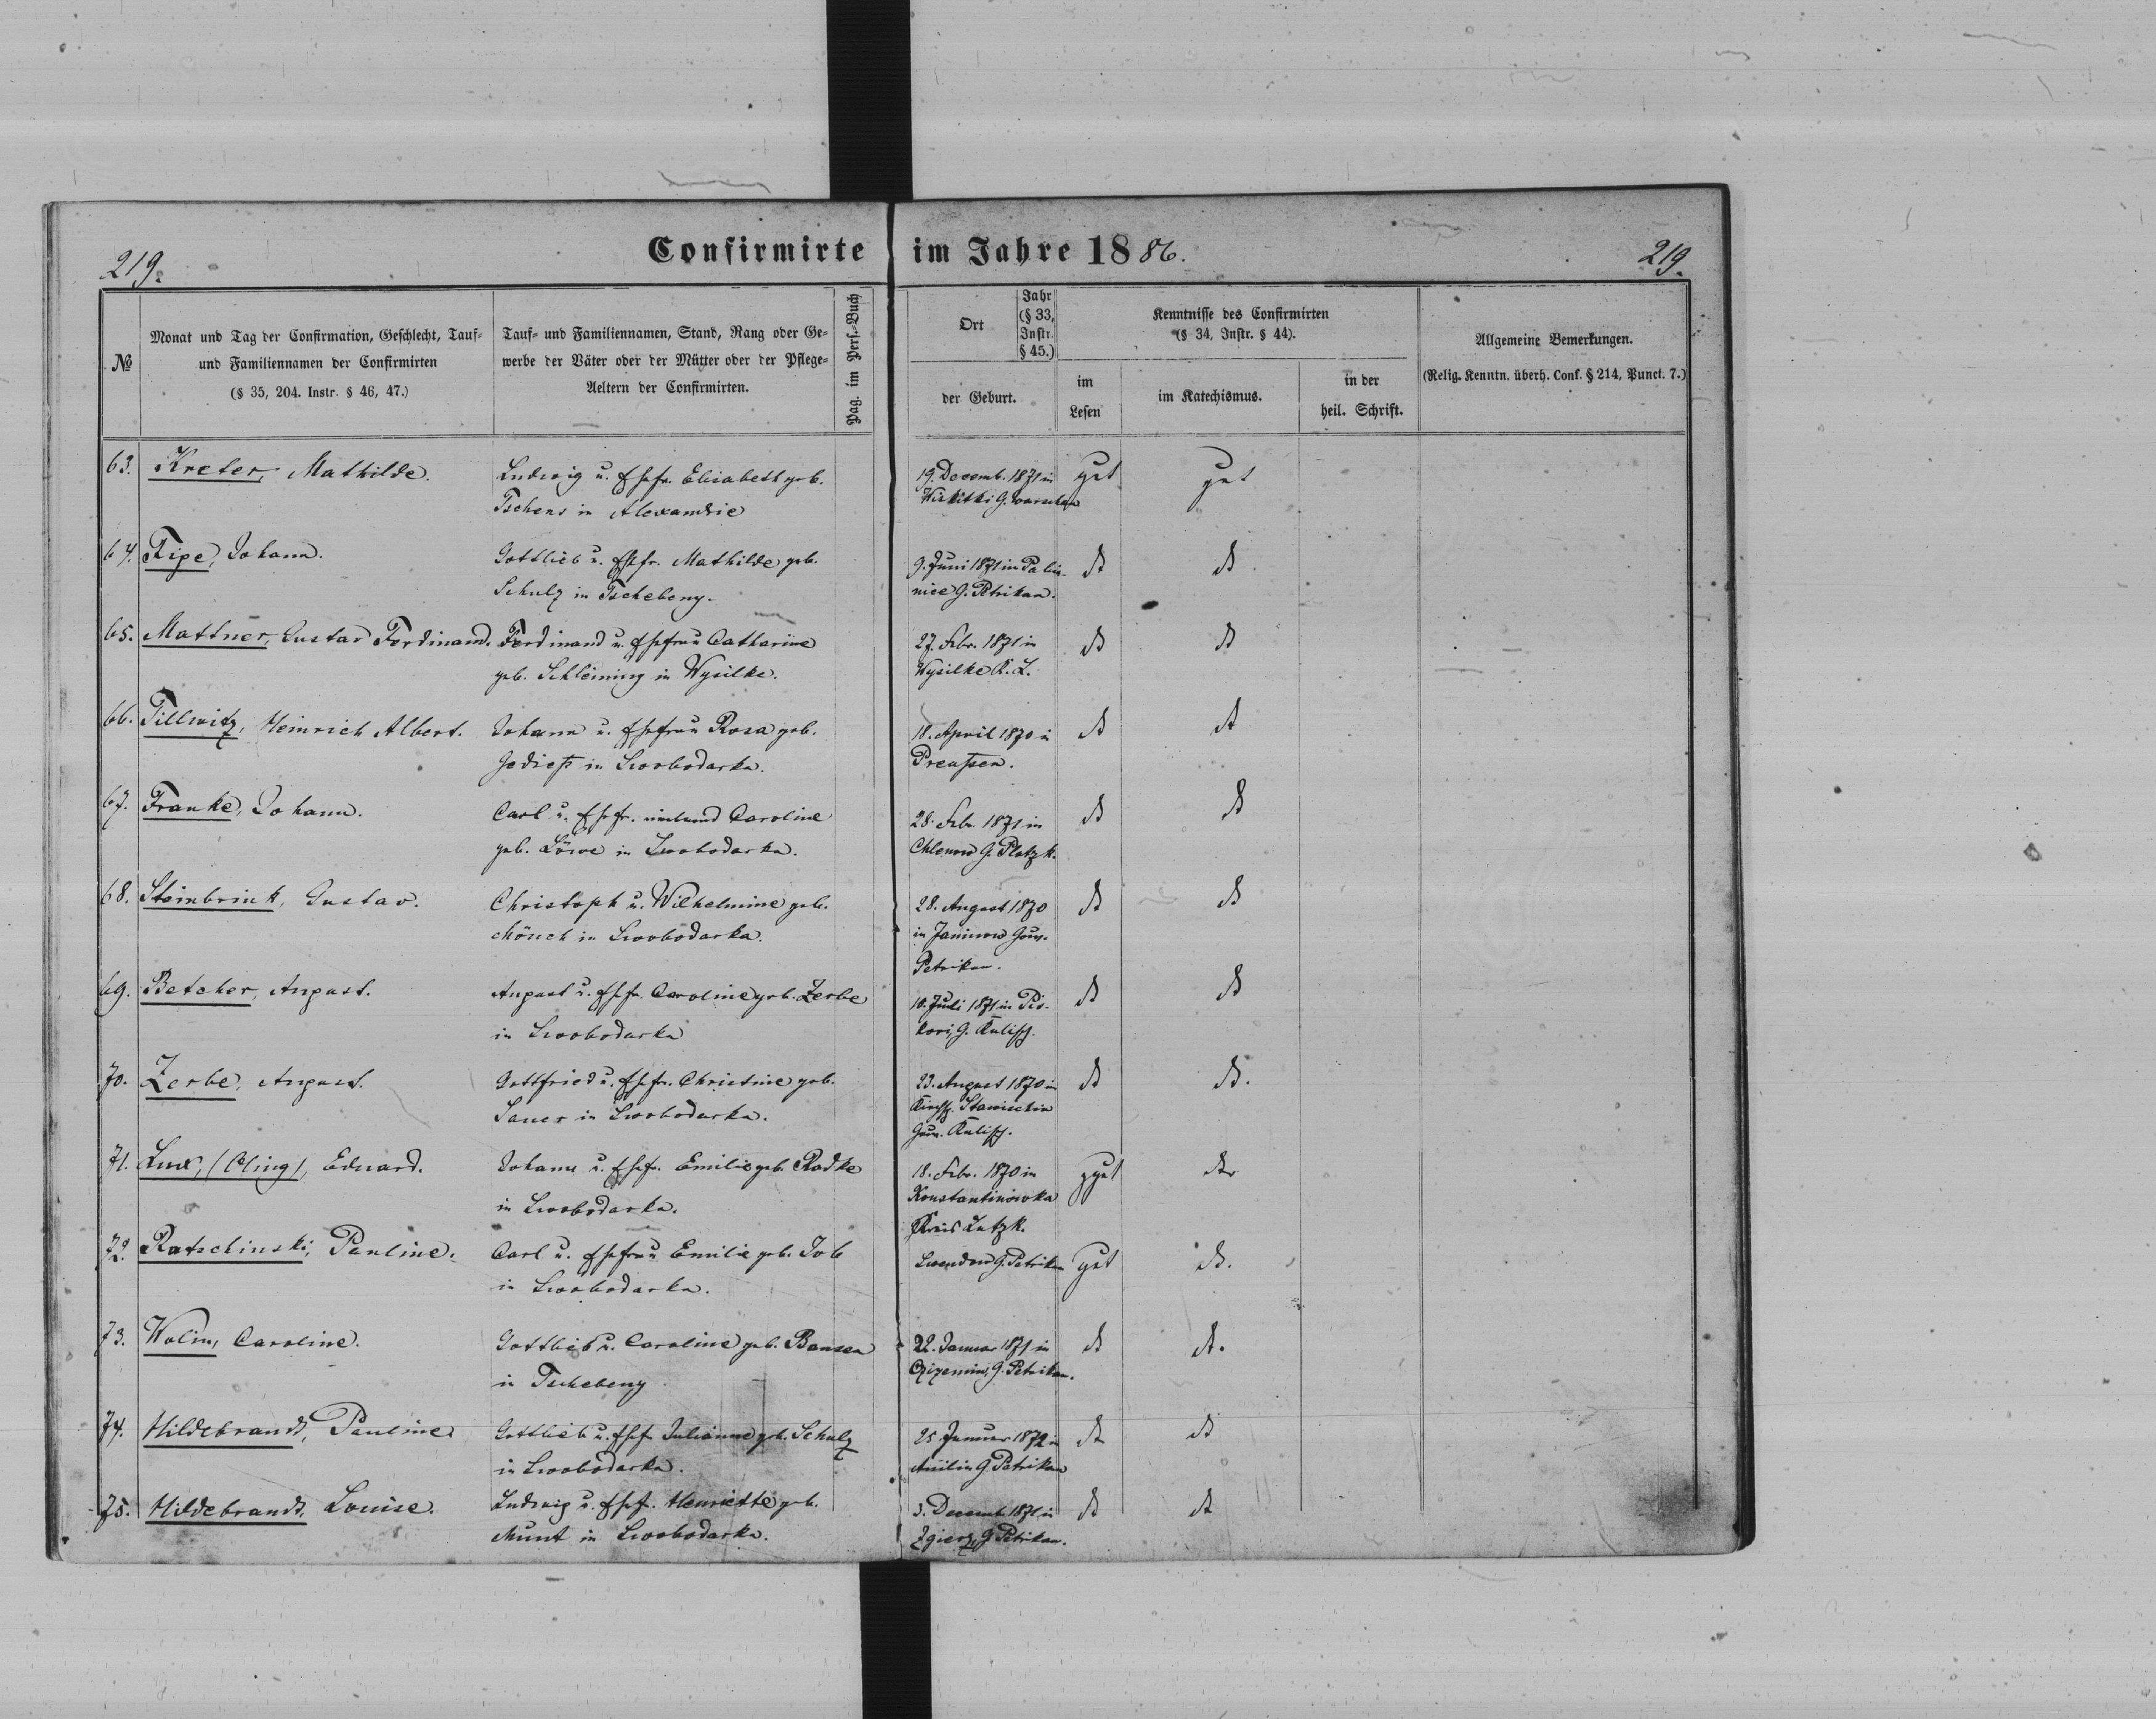 Confirmirte im Jahre 1886.
219.
219.
№
Monat und Tag der Confirmation, Geschlecht, Tauf-
und Familiennamen der Confirmirten
(§ 35, 204. Instr. § 46, 47.)
Tauf- und Familiennamen, Stand, Rang oder Ge-
werbe der Väter oder der Mütter oder der Pflege-
Aeltern der Confirmirten.
Pag. im Pers.-Buch
Ort
Jahr
(§ 33,
Instr.
§ 45.)
der Geburt.
Kenntnisse des Confirmirten
(§ 34, Instr. § 44).
im
Lesen
im Katechismus.
in der
heil. Schrift.
Allgemeine Bemerkungen.
(Relig. Kenntn. überh. Conf. § 214, Punct. 7.)
63. Kreter, Mathilde.
Ludwig u. Ehefr. Elisabeth geb.
Tschens in Alexandrie
19. Decemb. 1871 in
Wiskitki G. Warschau
gut
gut
64. Fipe, Johann.
Gottlieb u. Ehefr. Mathilde geb.
Schulz in Tschebeny.
9. Juni 1871 in Pabia-
nice G. Petrikau.
dt
dt
65. Mattner, Gustav Ferdinand.
Ferdinand u. Ehefrau Catharine
geb. Schleining in Wysilke.
27. Febr. 1871 in
Wysilke K. L.
dt
dt
66. Tillwitz, Heinrich Albert.
Johann u. Ehefrau Rosa geb.
in Swobodarka.
18. April 1870 in
Preußen.
dt
dt
67. Franke, Johann.
Carl u. Ehefr. weiland Caroline
geb. Löwe in Swobodarka.
28. Febr. 1871 in
Chlenow G. Plotzk.
dt
dt
68. Steinbrink, Gustav.
Christoph u. Wilhelmine geb.
Mönch in Swobodarka.
28. August 1870
in Janinow Gouv.
Petrikau.
dt
dt
69. Betcher, August.
August u. Ehefr. Caroline geb. Zerbe
in Swobodarka
10. Juli 1871 in Pis-
kori, G. Kalisch.
dt
dt
70. Zerbe, August.
Gottfried u. Ehefr. Christine geb.
Sauer in Swobodarka.
23. August 1870 in
Kirchsp. Stawischin
Gouv. Kalisch.
dt
dt.
71. Lux, (Cling), Eduard.
Johann u. Ehefr. Emilie geb. Radke
in Swobodarka.
18. Febr. 1870 in
Konstantinowka
Kreis Lutzk.
zgut
dt
72. Ratschinski, Pauline.
Carl u. Ehefrau Emilie geb. Job
in Swobodarka.
G. Petrikau
gut
dt.
73. Wolin, Caroline.
Gottlieb u. Caroline geb. Bansen
in Tschebeny
22. Januar 1871 in
G. Petrikau.
dt
dt.
74. Hildebrandt, Pauline
Gottlieb u. Ehefr. Julianne geb. Schulz
in Swobodarka.
25 Januar 1872 in
Anilin G. Petrikau
dt
dt
75. Hildebrandt, Louise.
Ludwig u. Ehefr. Henriette geb.
Munt in Swobodarka.
3. Decemb. 1871 in
Zgierz, G. Petrikau.
dt
dt